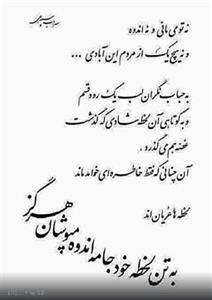 نه تو می مانی و نه اندوه
و نه هیچ یک از مردم این آبادی ...
به حباب نگران لب یک رود قسم
و به کوتاهی آن لحظه شادی که گذشت
غصه هم می گذرد ،
آن چنانی که فقط خاطره ای خواهد ماند
لحظه ها عریان اند
به تن لحظه خود جامه اندوه مپوشان هرگز